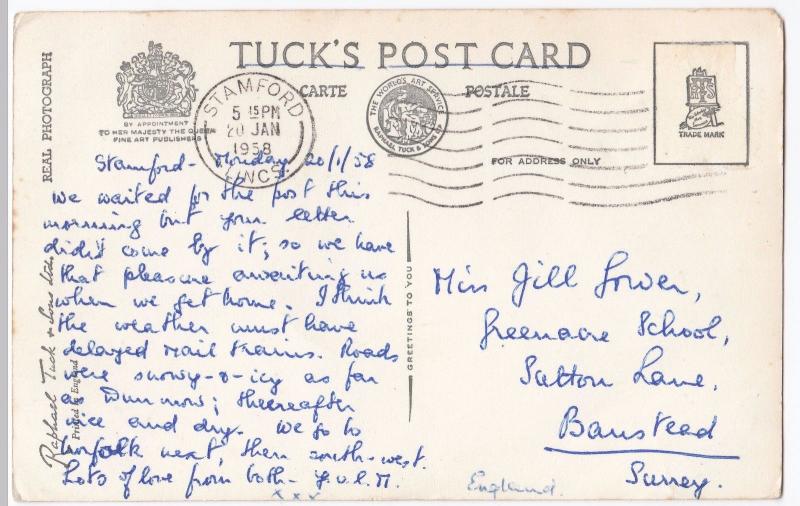 TUCK'S POST CARD
CARTE POSTALE
REAL PHOTOGRAPH
BY APPOINTMENT
TO HER MAJESTY THE QUEEN
FINE ART PUBLISHERS
STAMFORD
5 15PM
20 JAN
1958
LINCS
THE WORLD'S ART SERVICE
RAPHAEL TUCK & SONS LTD
TRADE MARK
FOR ADDRESS ONLY
Stamford - Monday 20/1/58
We waited for the post this
morning but your letter
didn't come by it; so we have
that pleasure awaiting us
when we get home. I think
the weather must have
delayed mail trains. Roads
were snowy-&-icy as far
as Dunmow; thereafter
nice and dry. We go to
Norfolk next, then south-west.
Lots of love from both -
x x x
Raphael Tuck & Sons Ltd.
Printed in England
GREETINGS TO YOU
Miss Jill
Greenacre School,
Sutton Lane,
Banstead
Surrey.
England.